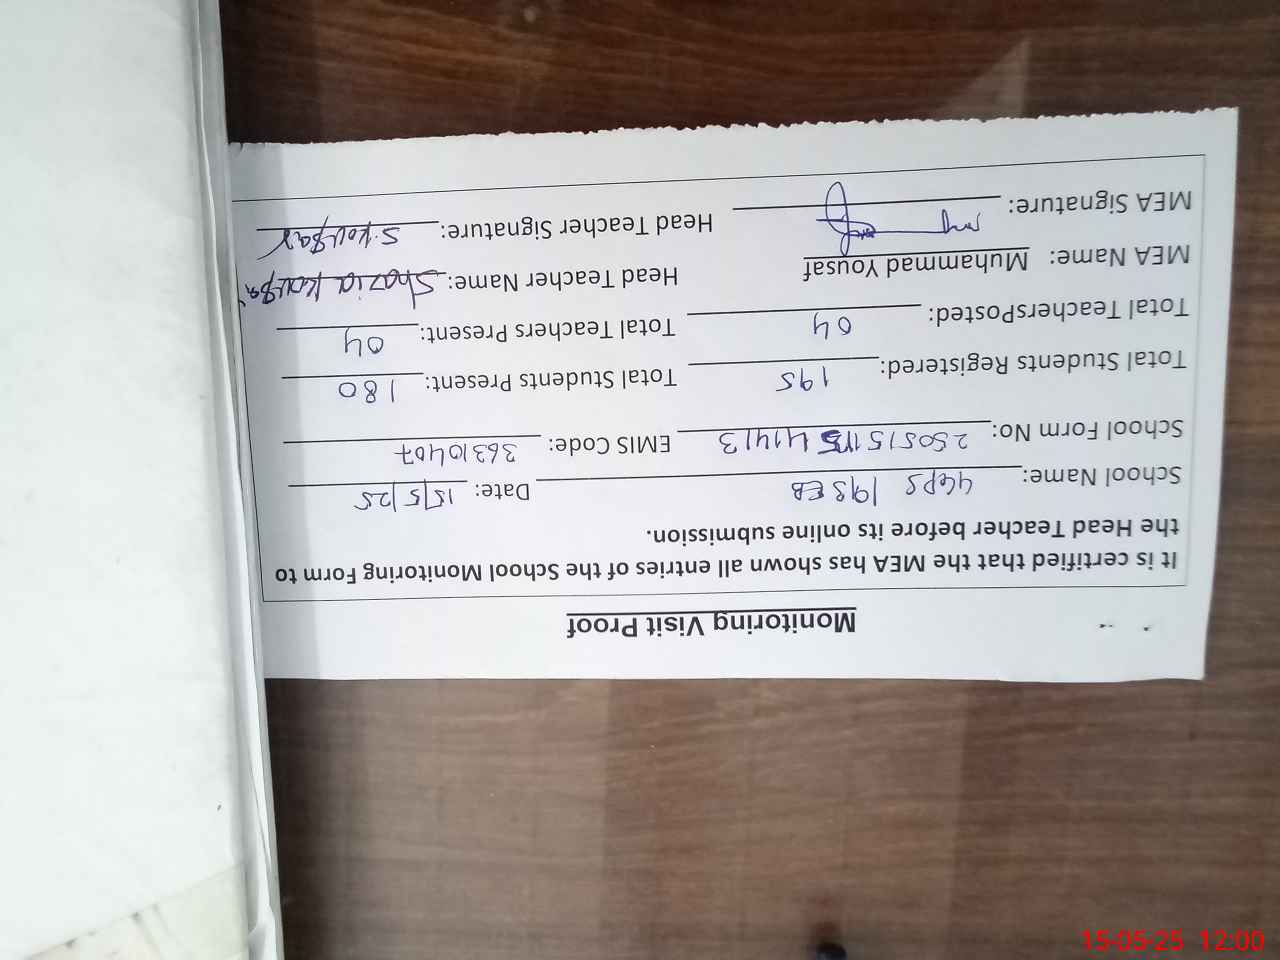 Monitoring Visit Proof
It is certified that the MEA has shown all entries of the School Monitoring Form to
the Head Teacher before its online submission.
School Name: GGPS 193 EB Date: 15/5/25
School Form No: EMIS Code: 36310407
Total Students Registered: 195 Total Students Present: 180
Total TeachersPosted: 04 Total Teachers Present: 04
MEA Name: Muhammad Yousaf Head Teacher Name: Shazia Kousar
MEA Signature: Head Teacher Signature: S.Kousar
15-05-25 12:00